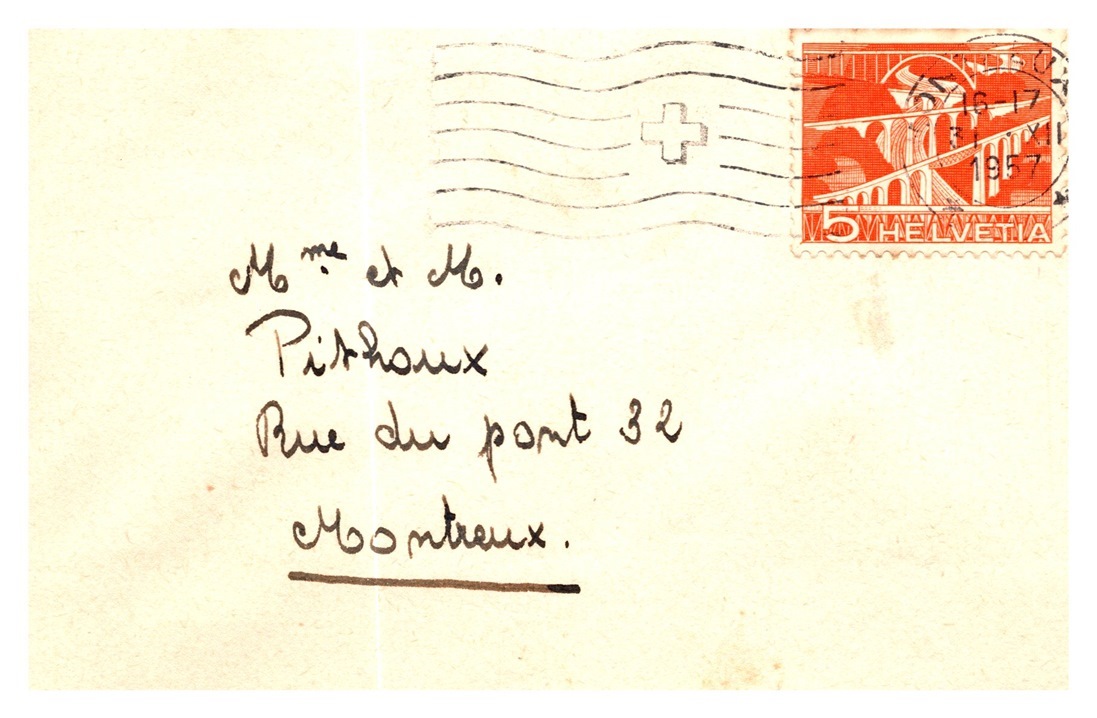 16-17
31 · XII
1957
5 HELVETIA
Mme et M.
Pithoux
Rue du pont 32
Montreux.